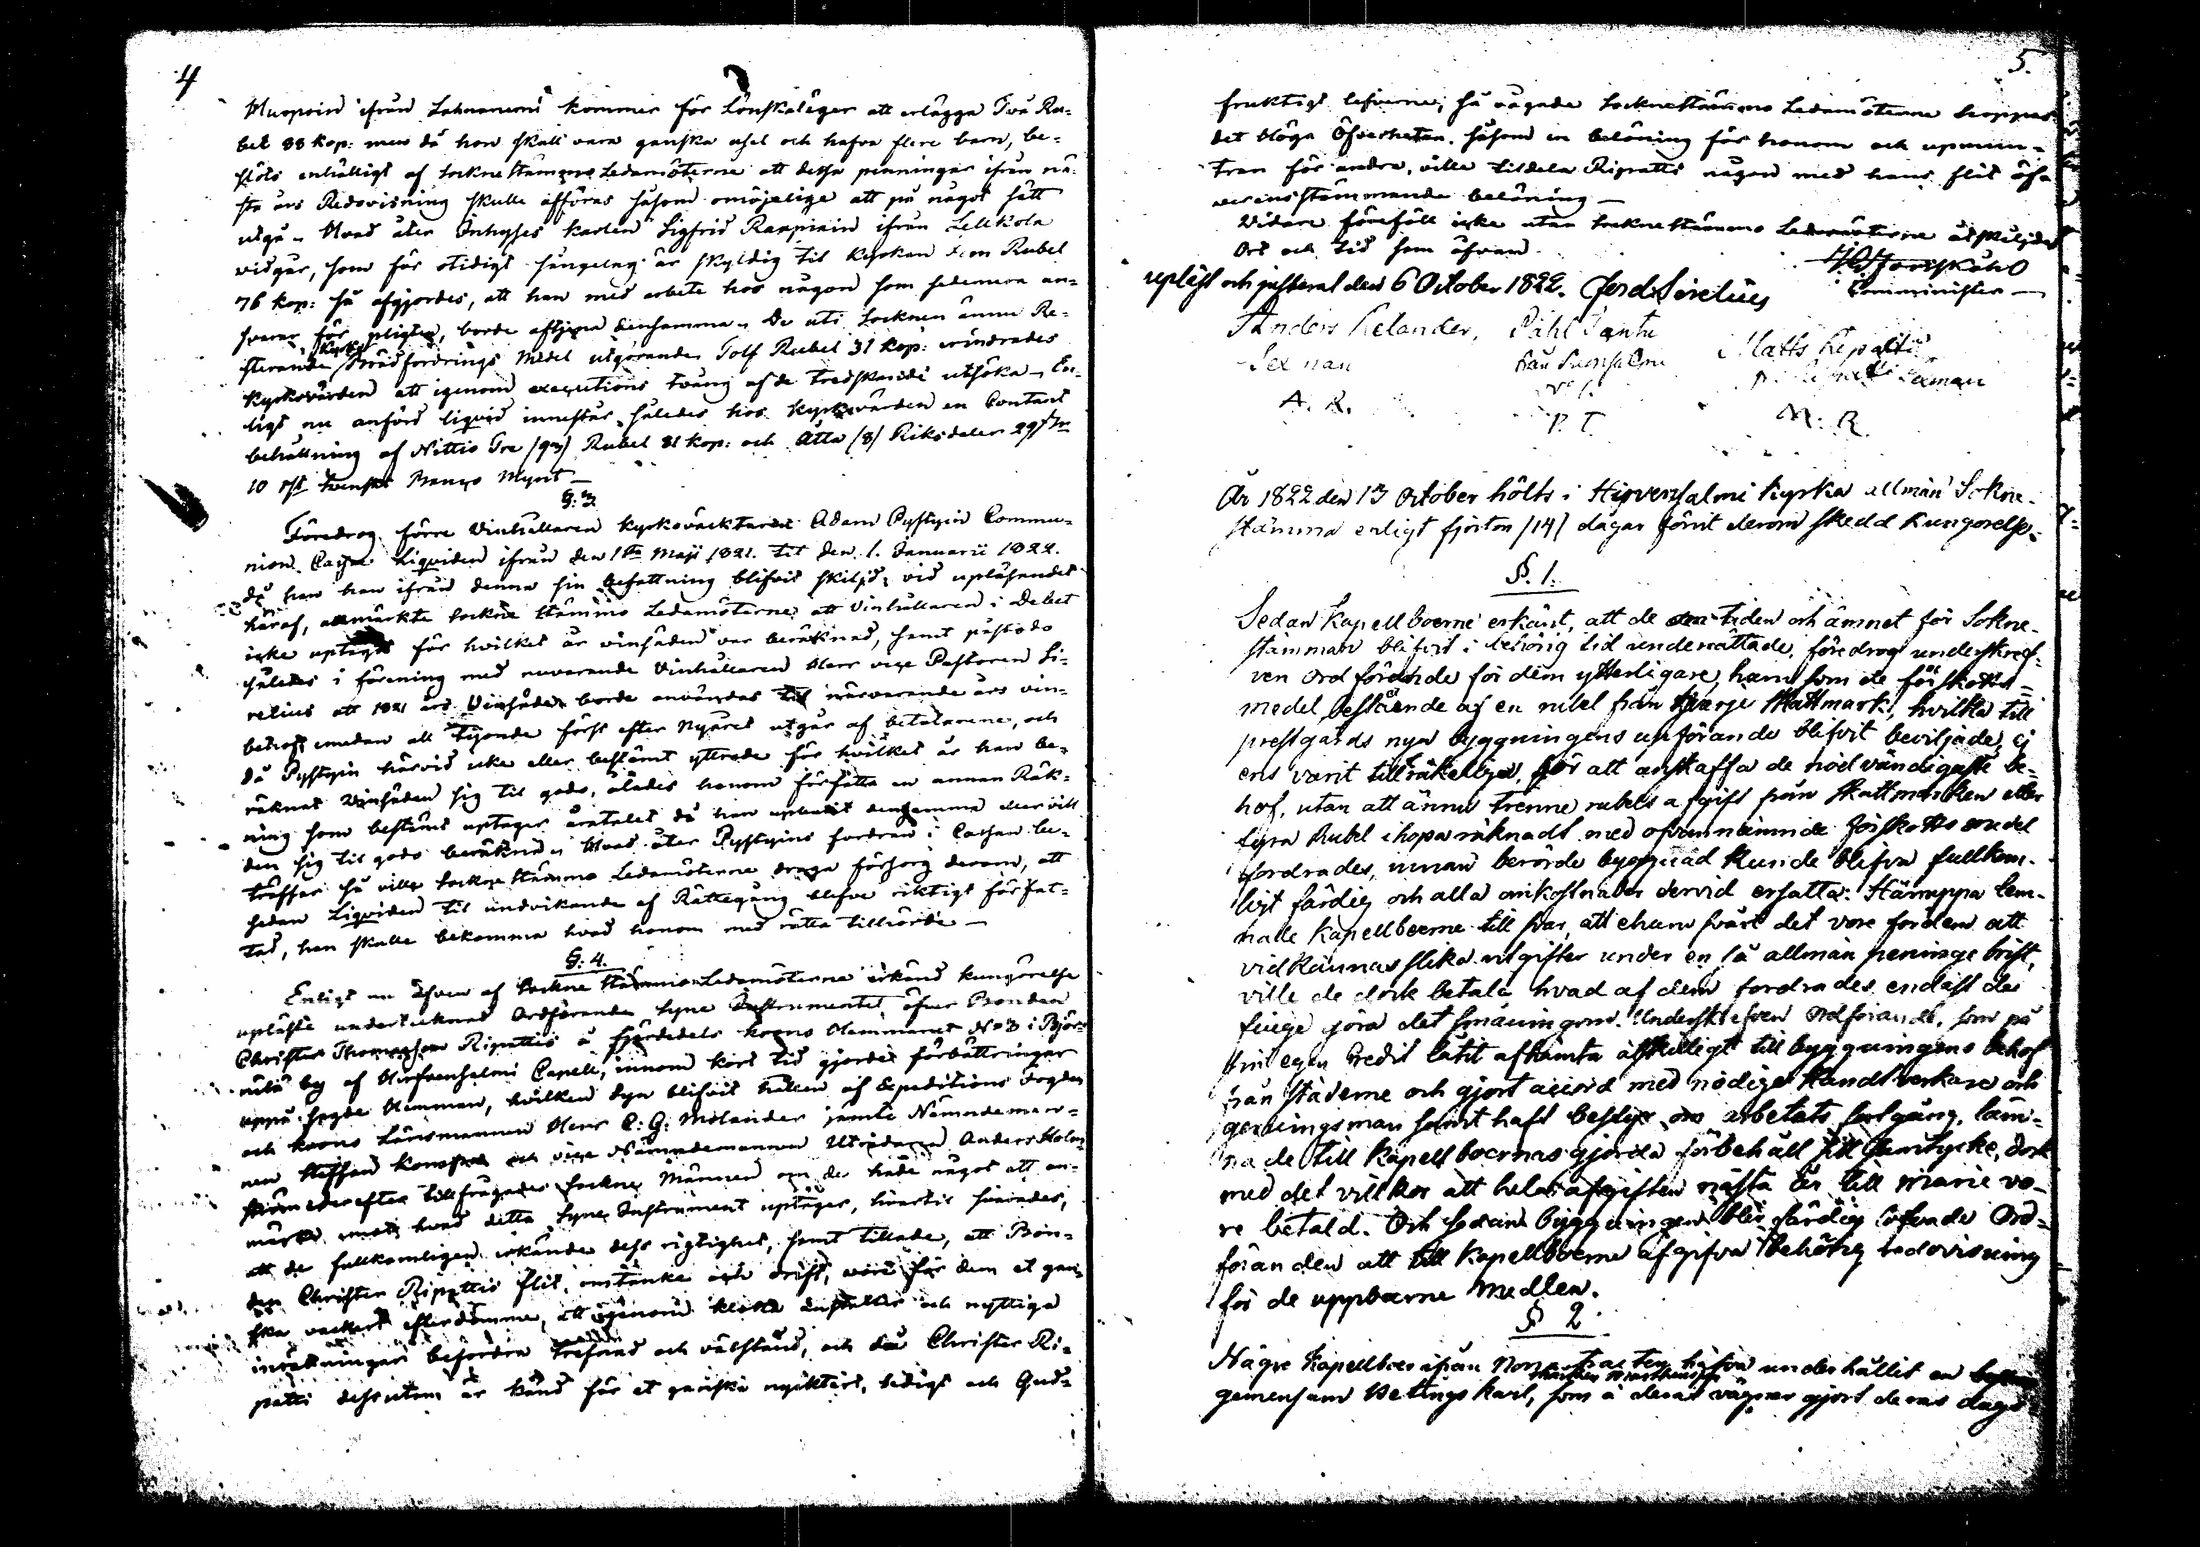 4
ifrån kommer för Lönskaläger att erlägga Två Ru-
bel 88 kop: men då hon skall vara ganska usel och hafva flere barn, be-
slöts enhälligt af Sockne Stämmo Ledamöterne att dessa penningar ifrån nä-
sta års Redovisning skulle afföras såsom omöjelige att på något sätt
utgå. Hvad åter Inhyses karlen Sigfrid ifrån Lelkola
vidgår, som för otidigt sängelag är skyldig til Kyrkan Fem Rubel
76 kop: så afgjordes, att han med arbete hos någon som sedermera an-
svarar för pligten, borde aftjena densamma. De uti Socknen ännu Re-
sterande Medel utgörande Tolf Rubel 31 kop: erindrades
kyrkovärden att igenom executions tvång af de tredskande utsöka. En-
ligt nu anförd liqvid innestår således hos kyrkovärden en Contant
behållning af Nittio Tre /93/ Rubel 81 kop: och Åtta /8/ Riksdaler 29
10 Svenskt Banco Mynt
§: 3.
Föredrog förre Vinhållaren kyrkoväcktaren Adam Pystynin Commu-
nion Cassa Liqviden ifrån den 1sta Maji 1821. til den 1. Januarii 1822.
då han ifrån denna sin befattning blifvit skiljd; vid uplåsandet
häraf, anmärkte Sockne Stämmo Ledamöterne att Vinhållaren i Debet
icke uptagit för hvilket år vinsäden var beräknad, samt påstodo
således i förening med nuvarande Vinhållaren Herr vice Pastoren Si-
relius att 1821 års Vinsäden borde användas til närvarande års vin-
behof emedan all Tijonde först efter Nyåret utgår af betalarene, och
då Pystynin härvid icke eller bestämt yttrade för hvilket år han be-
räknat Vinsäden sig til godo, ålades honom författa en annan Räk-
ning som bestämt uptager åratalet då han uburit densamma eller vill
den sig til godo beräkna. Hvad åter Pystynins fordran i Cassan be-
träffar så ville Sockne Stämmo Ledamöterne draga försorg derom, att
sedan Liqviden til undvikande af Rättegång blefve riktigt förfat-
tad, han skulle bekomma hvad honom med rätta tillhörde
§: 4.
Enligt nu äfven af Sockne Stämmo Ledamöterne erkänd kungörelse
upläste undertecknad Ordförande Syne Instrumentet öfver Bonden
Christer Thomasson Ripattis å fjerdedels krono Hemmanet No 3 i Björ-
nilä by af Hirfvensalmi Capell, innom kort tid gjorde förbättringar
uppå sagde Hemman, hvilken Syn blifvit hållen af Expeditions Fogden
och krono Länsmannen Herr C: G: Molander jämte Nämndemän-
nen Staffan och vice Nämndemannen Utridaren Anders Holm
ström derefter tillfrågades Sockne Männen om de hade något att an-
märka emot hvad detta Syne Instrument uptager, hvartil svarades,
att de fullkomligen erkände dess rigtighet, samt tillade, att Bon-
den Christer Ripattis flit, omtanke och drift, vore för dem et gan-
ska vackert efterdömme, att igenom kloka anstalter och nyttiga
inrättningar befordra trefnad och välstånd, och då Christer Ri-
patti dessutom är känd för et ganska nyktert, sedigt och Gud-
5.
fruktigt lefverne; så vågade Socknestämmo Ledamöterne hoppas
det Höga Öfverheten, såsom en belöning för honom och upmun-
tran för andra, ville tildela Ripattis någon med hans flit öf-
verensstämmande belöning
Vidare förefoll icke utan Socknestämmo Ledamöterne åtskiljdes
Ort och tid som ofvan.
Comminister
upläst och justerat den 6 October 1822. Ferd Sirelius
Anders Kelander, Påhl Tantu
Sexman från
Matts Repatti
Sexman
A. K. P. T. M. R.
År 1822 den 13 October hölts i Hirvensalmi Kyrka allmän Sokne-
stämma enligt fjorton /14/ dagar förut derom skedd Kungörelse.
§. 1.
Sedan Kapellboerne erkänt, att de om tiden och ämnet för Sokne-
stämman blifvit i behörig tid underrättade, föredrog underskref-
ven Ordförande för dem ytterligare, huru som de förskotts-
medel bestående af en rubel från hvarje skattmark, hvilka till
prestgårds nya byggningens utförande blifvit beviljade, ej
ens varit tillräkeliga, för att anskaffa de nödvändigaste be-
hof, utan att ännu trenne rubels afgift från skattmarken eller
fyra Rubel ihoparäknadt med ofvannämnde förskotts medel
fordrades, innan berörde byggnad kunde blifva fullkom-
ligt färdig och alla omkostnader dervid ersatta: Häruppå lem-
nade Kapellboerne till svar, att ehuru svårt det vore för dem att
vidkännas slika utgifter under en så allmän peninge brist,
ville de dock betala hvad af dem fordrades, endast de
finge göra det småningom. Underskrefven Ordförande, som på
sin egen Credit låtit afhämta åtskilligt till byggningens behof
från städerne och gjort accord med nödige Handtverkare och
gerningsman samt haft bestyr om arbetets fortgång, läm-
nade till Kapellboernas gjorda förbehåll sitt samtycke, dock
med det villkor att hela afgiften nästa år till Marie vo-
re betald. Och sedan byggningen blir färdig lofvade Ord-
föranden att till Kapellboerne afgifva behörig redovisning
för de uppborne medlen.
§ 2.
Någre Kapellboer ifrån Norra trakten hafva underhållit en
gemensam Betings karl, som å deras vägnar gjort deras dags-